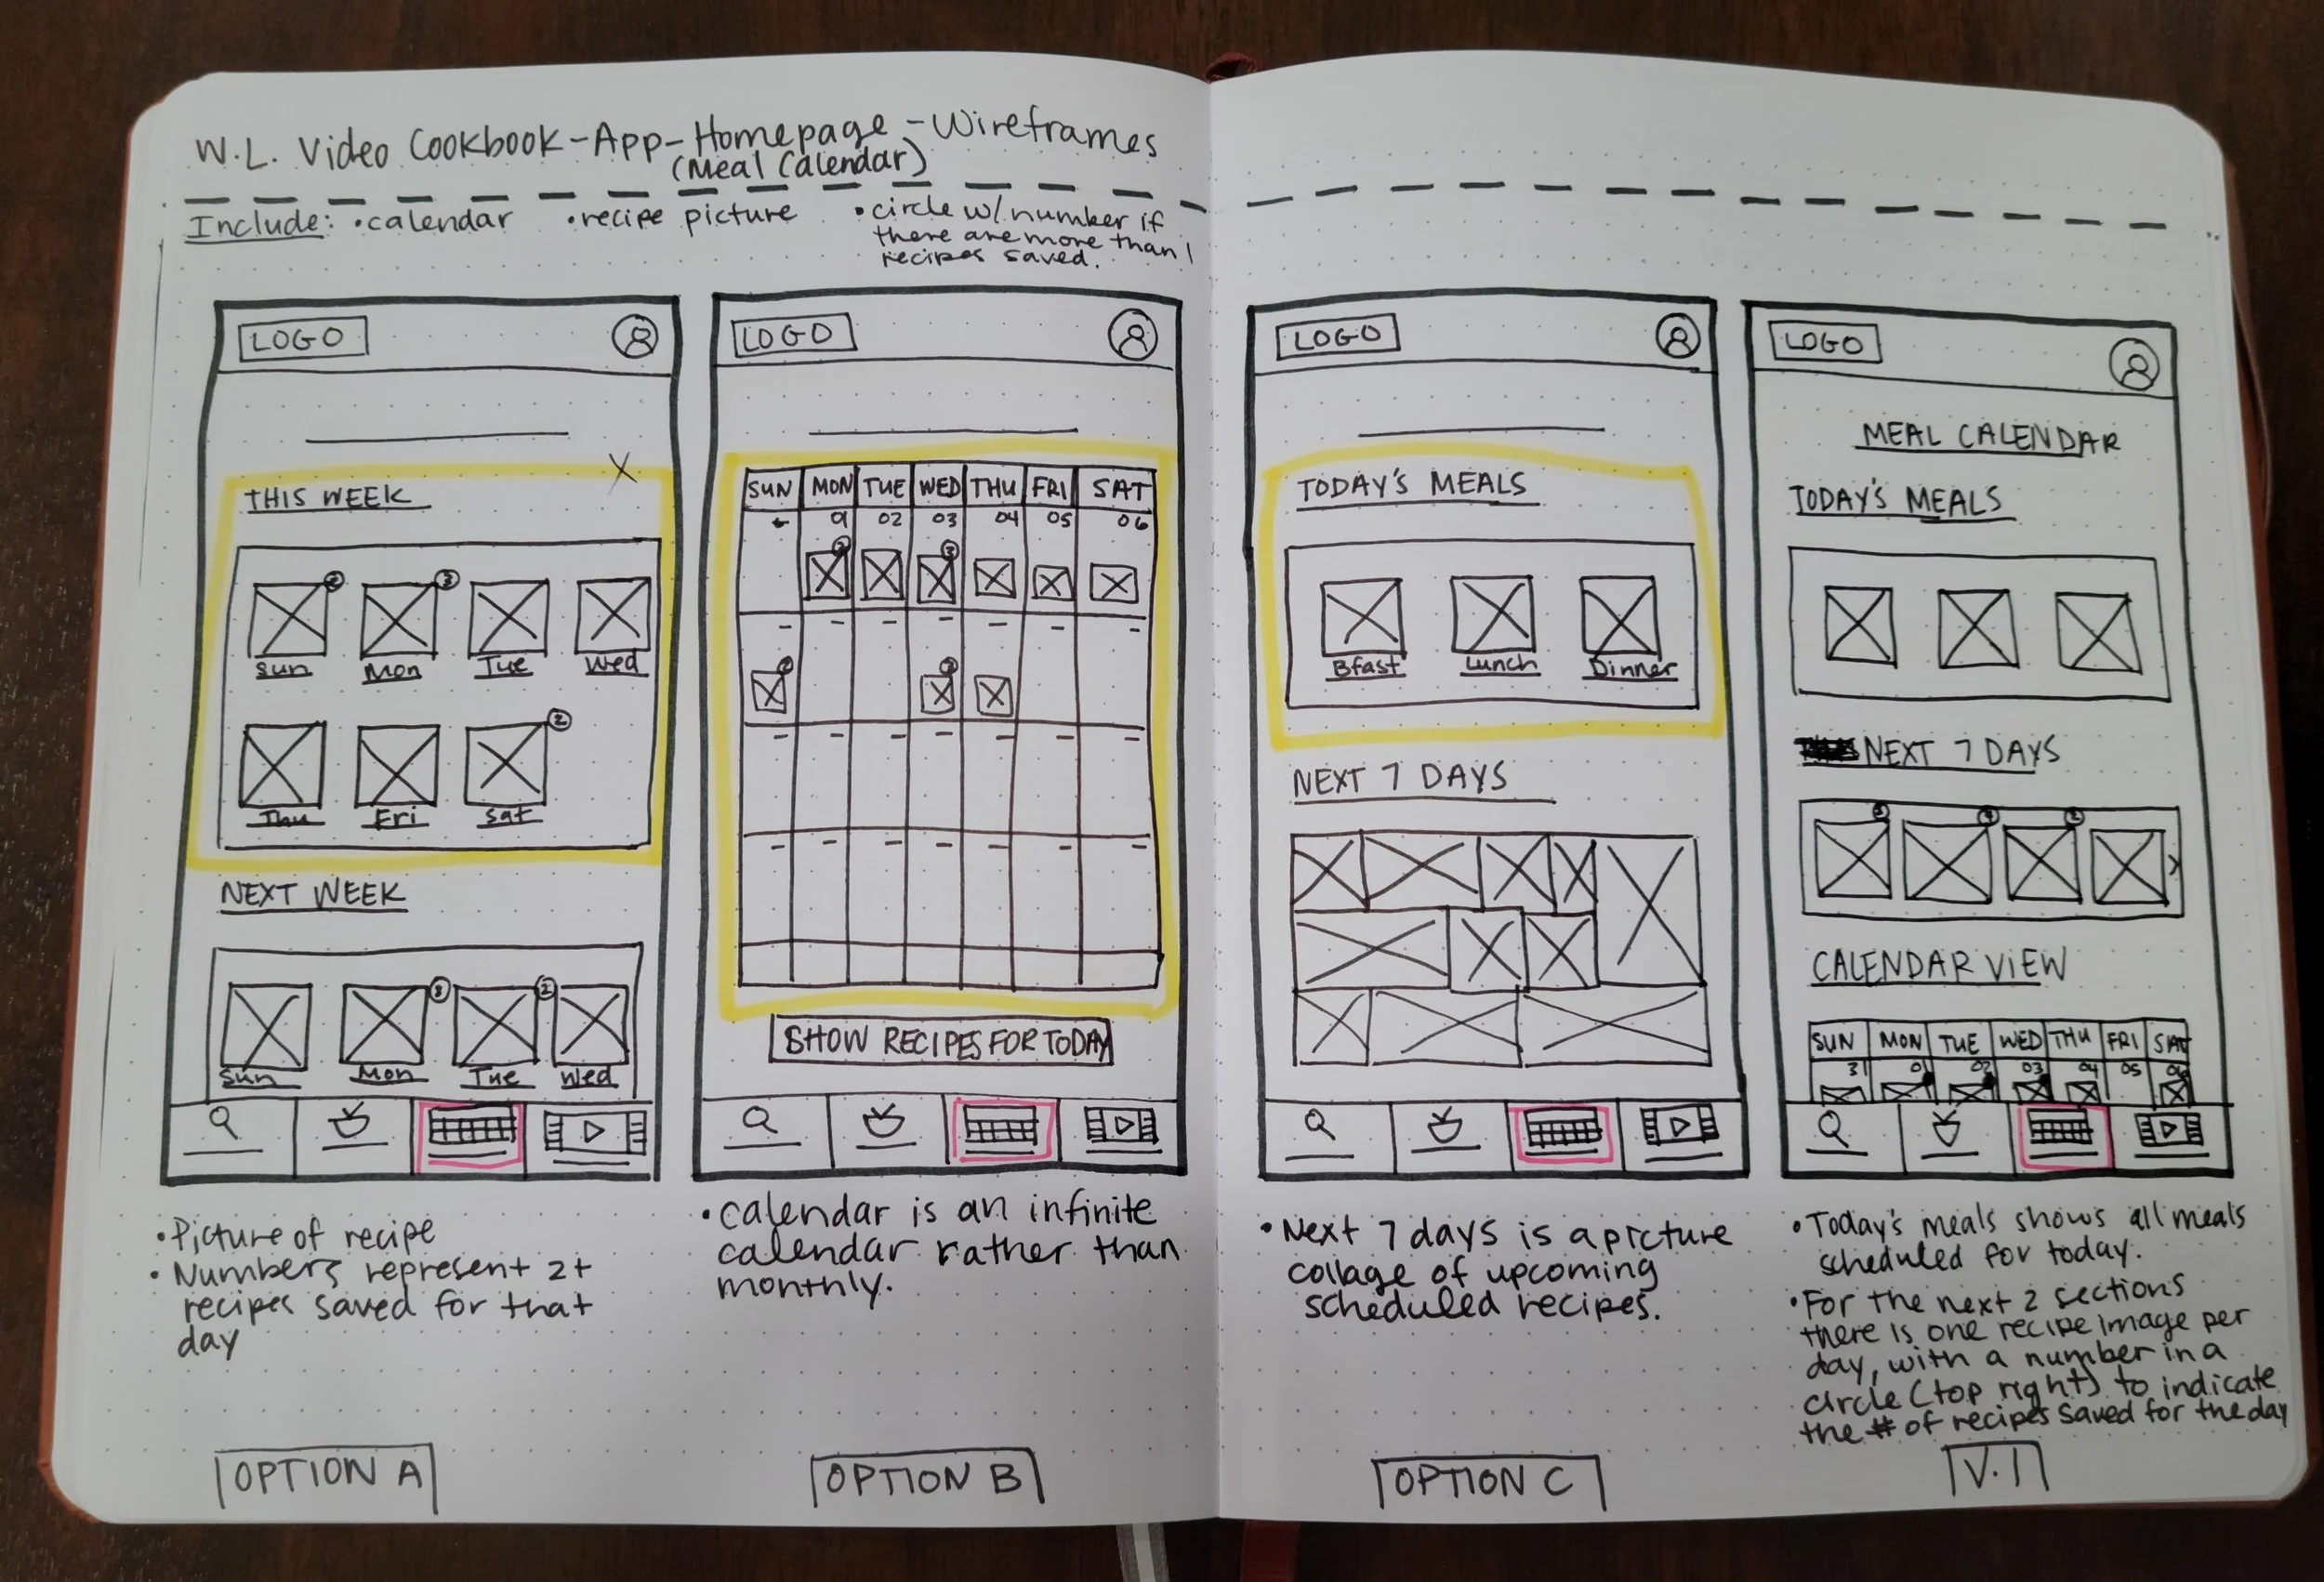 W.L. Video Cookbook-App-Homepage-Wireframes
(Meal Calendar)
Include: •calendar •recipe picture •circle w/ number if
there are more than 1
recipes saved.
LOGO
THIS WEEK
X
2 3
Sun Mon Tue Wed
2
Thu Fri Sat
NEXT WEEK
3 2
Sun Mon Tue Wed
•Picture of recipe
•Numbers represent 2+
recipes saved for that
day
OPTION A
LOGO
SUN MON TUE WED THU FRI SAT
01 02 03 04 05 06
3
SHOW RECIPES FOR TODAY
•calendar is an infinite
calendar rather than
monthly.
OPTION B
LOGO
TODAY'S MEALS
Bfast Lunch Dinner
NEXT 7 DAYS
•Next 7 days is a picture
collage of upcoming
scheduled recipes.
OPTION C
LOGO
MEAL CALENDAR
TODAY'S MEALS
NEXT 7 DAYS
CALENDAR VIEW
SUN MON TUE WED THU FRI SAT
31 01 02 03 04 05 06
•Today's meals shows all meals
scheduled for today.
•For the next 2 sections
there is one recipe image per
day, with a number in a
circle (top right) to indicate
the # of recipes saved for the day
V.1